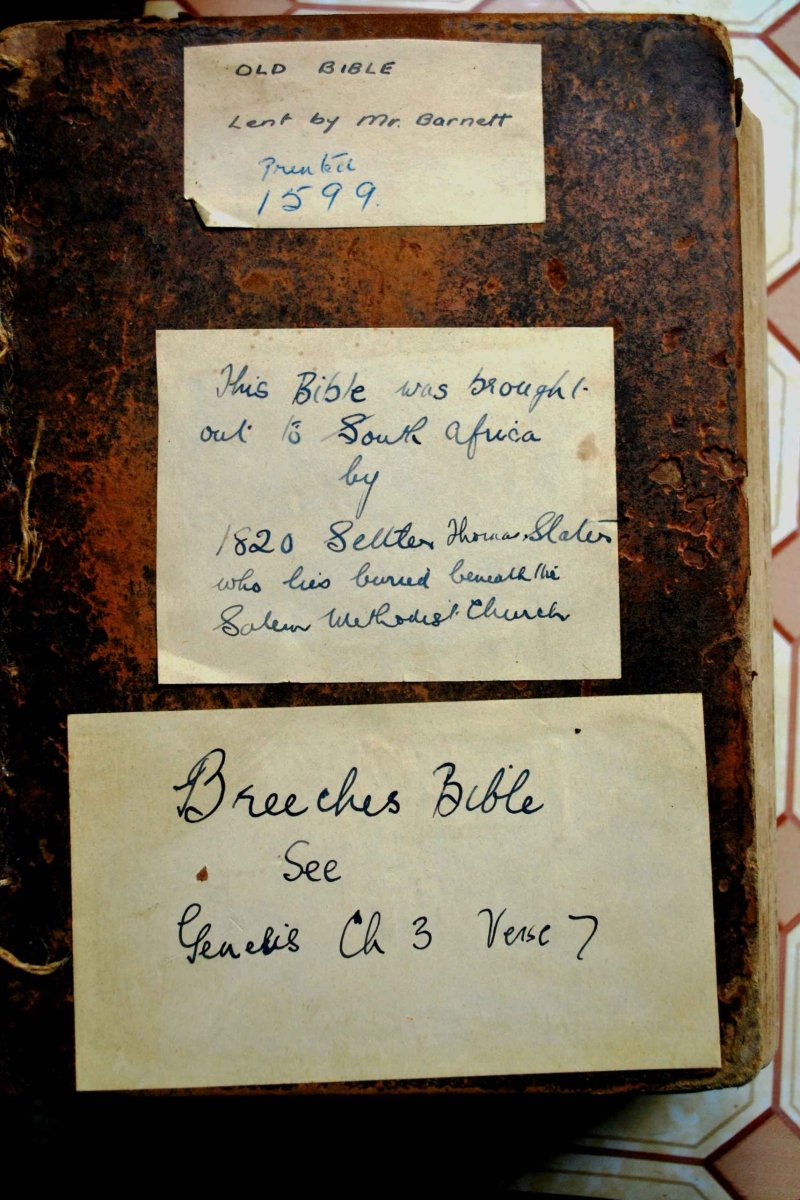 OLD BIBLE
Lent by Mr. Barnett
Printed
1599.
This Bible was brought
out to South Africa
by
1820 Settler Thomas Slater
who lies buried beneath the
Salem Methodist Church
Breeches Bible
See
Genesis Ch 3 Verse 7